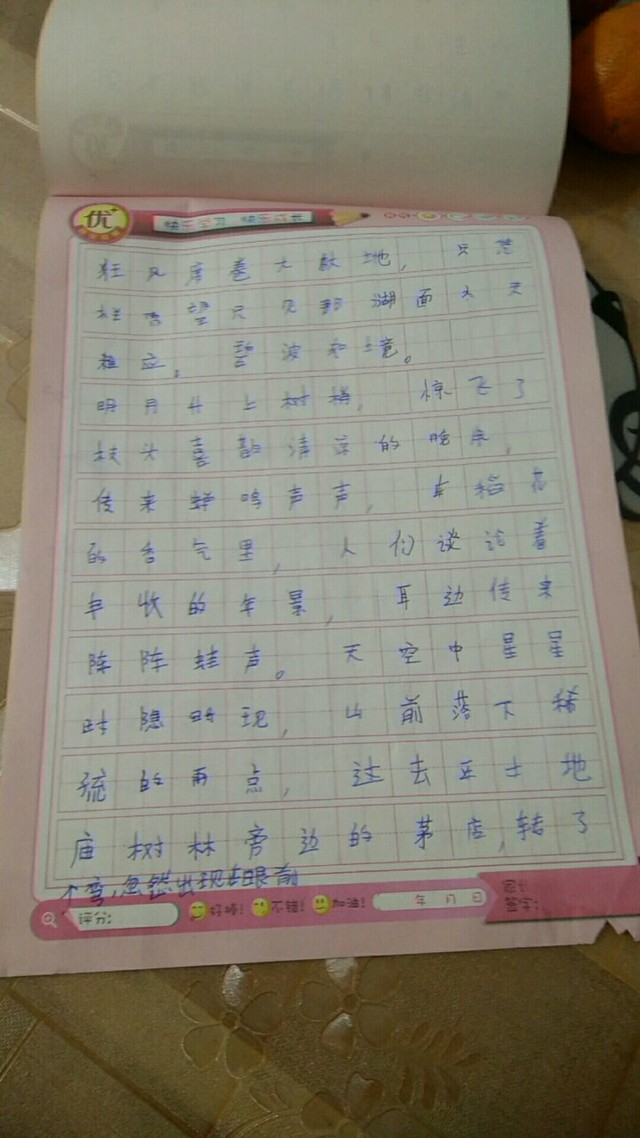 优
快乐学习 快乐成长
狂风席卷大散地，只范
栏杏望只见那湖面水天
相立。碧波和境。
明月升上树梢，惊飞了
枝头喜鹊清凉的晚来，
传来蝉鸣声声，在稻花
的香气里，人们谈论着
丰收的年景，耳边传来
阵阵蛙声。天空中星星
时隐时现，山前落下稀
疏的雨点，过去在土地
庙树林旁边的茅店，转了
个弯，忽然出现在眼前
评分：
好棒！ 不错！ 加油！
年 月 日
家长
签字：